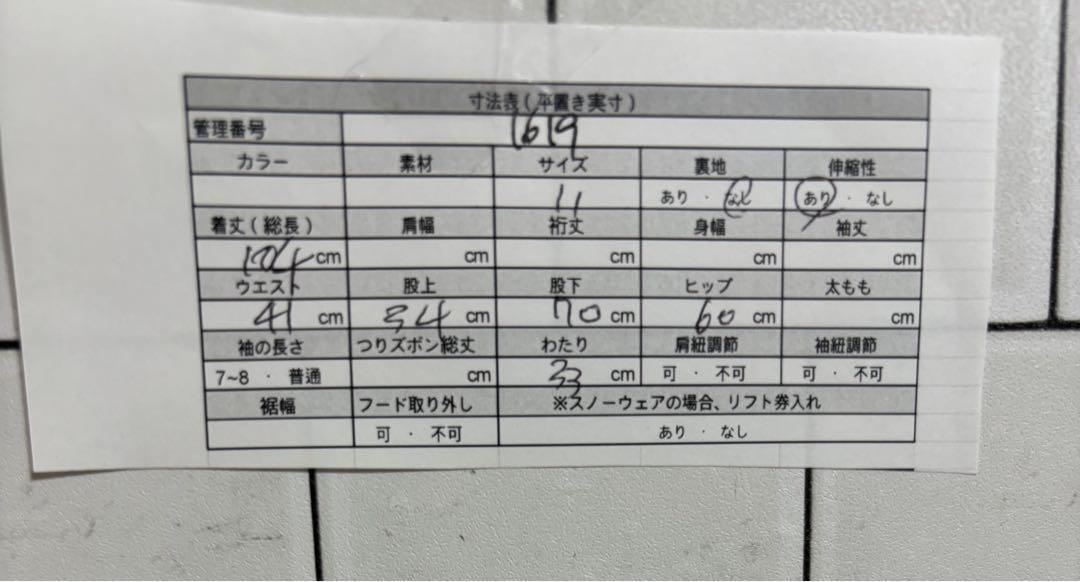 寸法表(平置き実寸)
管理番号 1619
カラー 素材 サイズ 裏地 伸縮性
11 あり・なし あり・なし
着丈(総長) 肩幅 裄丈 身幅 袖丈
104cm cm cm cm cm
ウエスト 股上 股下 ヒップ 太もも
41 cm 34 cm 70cm 60 cm cm
袖の長さ つりズボン総丈 わたり 肩紐調節 袖紐調節
7~8・普通 cm 33 cm 可・不可 可・不可
裾幅 フード取り外し ※スノーウェアの場合、リフト券入れ
可・不可 あり・なし